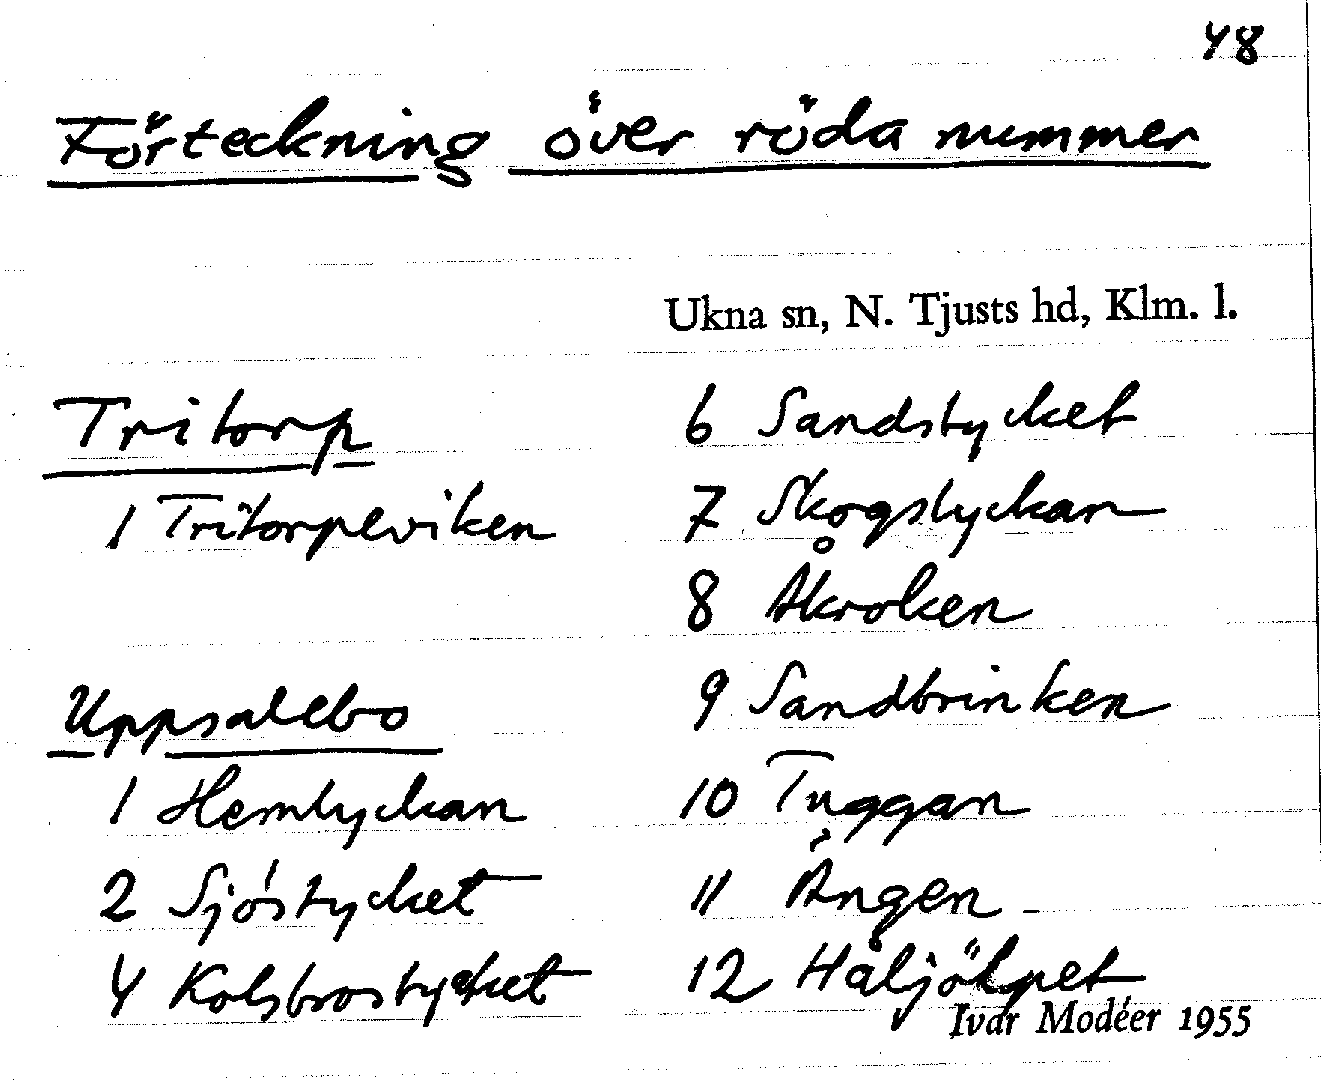 48
Förteckning över röda nummer
Ukna sn, N. Tjusts hd, Klm. l.
Tritorp
1 Tritorpeviken
Uppsalebo
1 Hemlyckan
2 Sjöstycket
4 Kolsbrostycket
6 Sandstycket
7 Skogslyckan
8 Åkroken
9 Sandbrinken
10 Tuggan
11 Ängen
12
Ivar Modéer 1955